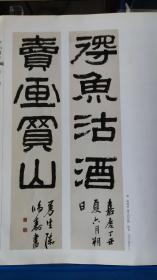 得魚沽酒
嘉慶丁丑
夏六月朔
日
賣畫買山
曼生陳
鴻壽書